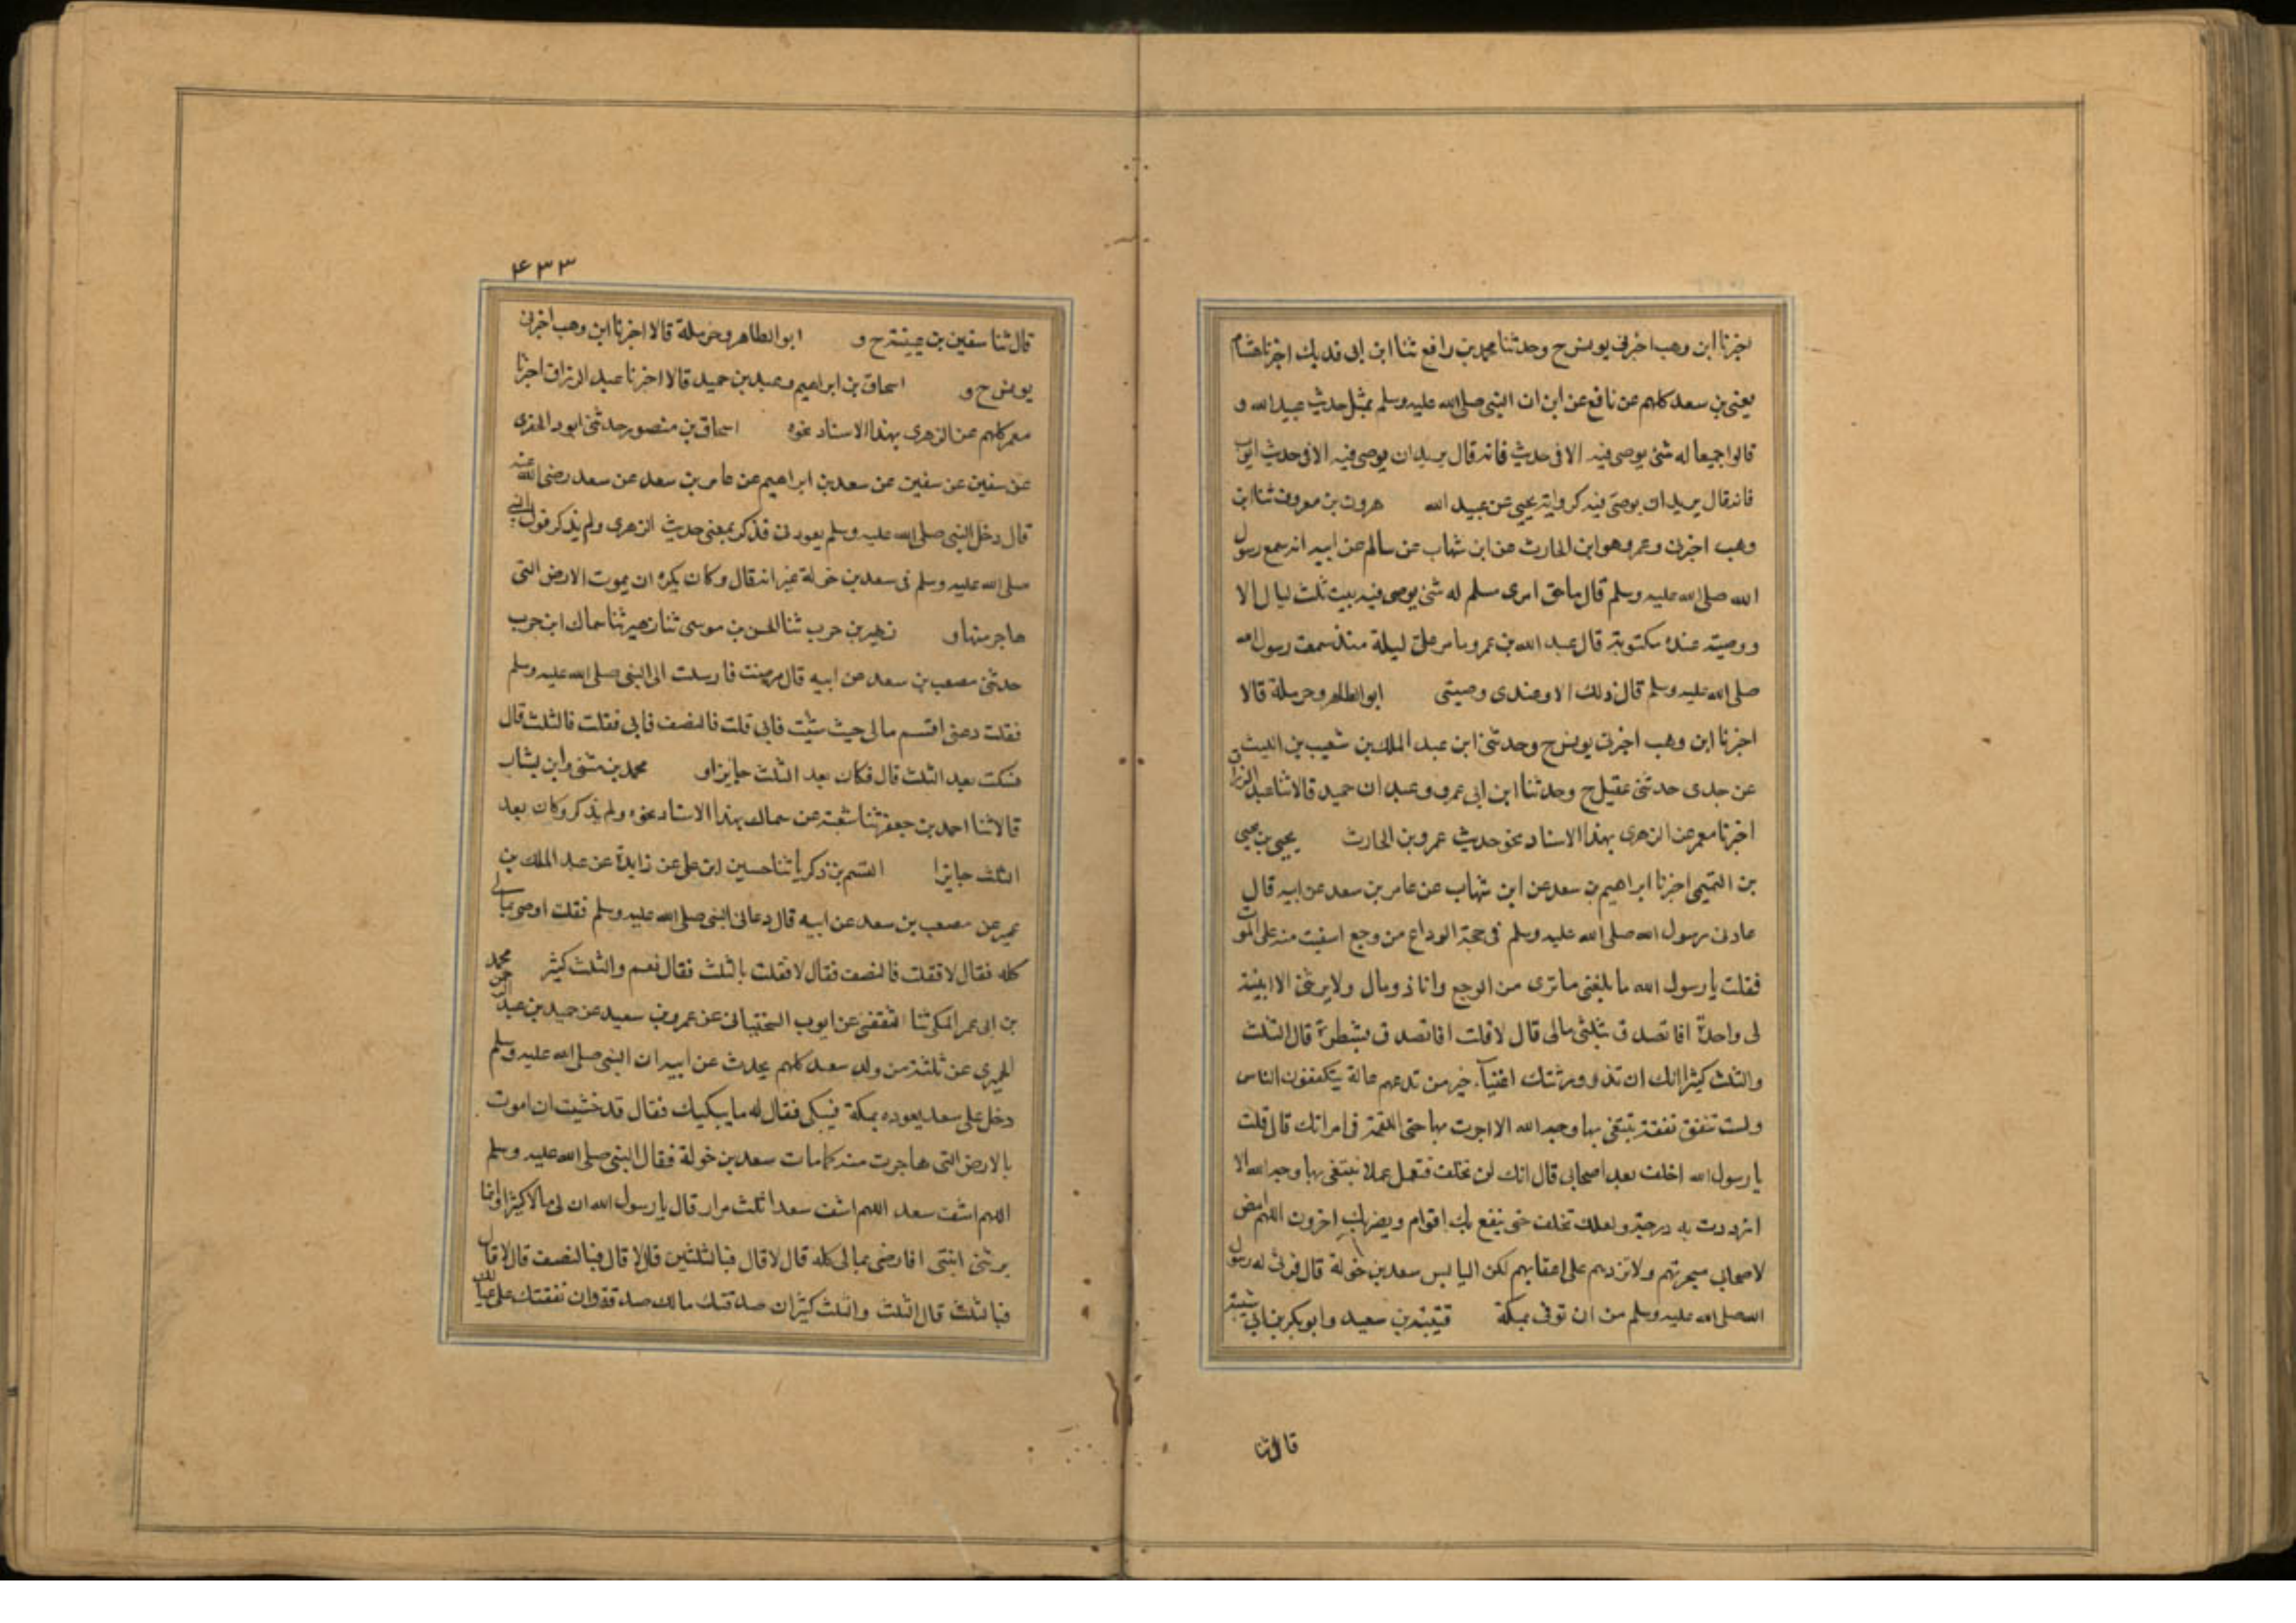 اخبرنا ابن وهب اخبرنى يونس ح وحدثنا محمد بن رافع ثنا ابن ابى فديك اخبرنا هشام
يعنى بن سعد كلهم عن نافع عن ابن ان النبى صلى الله عليه وسلم بمثل حديث عبيد الله و
قالوا جميعا له شئ يوصى فيه الا فى حديث فانه قال يريد ان يوصى فيه الا فى حديث ايوب
فانه قال يريد ان يوصى فيه كرواية يحيى عن عبيد الله هرون بن معروف ثنا ابن
وهب اخبرنى وعمرو هو ابن الحارث عن ابن شهاب عن سالم عن ابيه انه سمع رسول
الله صلى الله عليه وسلم قال ما حق امرى مسلم له شئ يوصى فيه يبيت ثلث ليال الا
ووصيته عنده مكتوبة قال عبد الله بن عمر وما مر على ليلة منذ سمعت رسول الله
صلى الله عليه وسلم قال ذلك الا وعندى وصيتى ابو الطاهر وحرملة قالا
اخبرنا ابن وهب اخبرنى يونس ح وحدثنى ابن عبد الملك بن شعيب بن الليث
عن جدى حدثنى عقيل ح وحدثنا ابن ابى عمرو وعبد ان حميد قالا ثنا عبد الرزاق
اخبرنا معمر عن الزهرى بهذا الاسناد نحو حديث عمرو بن الحارث يحيى بن يحيى
بن التميمى اخبرنا ابراهيم بن سعد عن ابن شهاب عن عامر بن سعد عن ابيه قال
عادنى رسول الله صلى الله عليه وسلم فى حجة الوداع من وجع اسفيت منه على الموت
فقلت يا رسول الله ما بلغنى ما ترى من الوجع وانا ذو مال ولا يرثنى الا ابنة
لى واحدة افاتصدق بثلثى مالى قال لا قلت افاتصدق بشطرة قال الثلث
والثلث كثير انك ان تذر ورثتك اغنيآء خير من تدعهم عالة يتكففون الناس
ولست تنفق نفقة تبتغى بها وجه الله الا اجرت بها حتى اللقمة فى امراتك قال قلت
يا رسول الله اخلف بعد اصحابى قال انك لن تخلف فتعمل عملا تبتغى بها وجه الله الا
ازددت به درجة ولعلك تخلف حتى ينفع بك اقوام ويضر بك اخرون اللهم امض
لاصحابى هجرتهم ولا تردهم على اعقابهم لكن البايس سعد بن خولة قال فرثى له رسول
الله صلى الله عليه وسلم من ان توفى بمكة قتيبة بن سعيد وابو بكر بن ابى شيبة
قالا ثنا
۴۳۳
قال ثنا سفين بن عيينة ح و ابو الطاهر وحرملة قالا اخبرنا ابن وهب اخبرنى
يونس ح و اسحاق بن ابراهيم وعبد بن حميد قالا اخبرنا عبد الرزاق اخبرنا
معمر كلهم عن الزهرى بهذا الاسناد نحوه اسحاق بن منصور حدثنى ابو د الحفرى
عن سفين عن سفين عن سعد بن ابراهيم عن عامر بن سعد عن سعد رضى الله عنه
قال دخل النبى صلى الله عليه وسلم يعودنى فذكر بمعنى حديث الزهرى ولم يذكر قول النبى
صلى الله عليه وسلم فى سعد بن خولة غير انه قال وكان يكره ان يموت الارض التى
هاجر منها و زهير بن حرب ثنا الحسن بن موسى ثنا زهير ثنا سماك ابن حرب
حدثنى مصعب بن سعد عن ابيه قال مرضت فارسلت الى النبى صلى الله عليه وسلم
فقلت دعنى اقسم مالى حيث شئت فابى قلت فالنصف فابى فقلت فالثلث قال
فسكت بعد الثلث قال فكان بعد الثلث جايزا و محمد بن مثنى وابن بشار
قالا ثنا احمد بن جعفر ثنا شعبة عن سماك بهذا الاسناد نحوه ولم يذكر وكان بعد
الثلث جايزا القسم بن زكريا ثنا حسين ابن على عن زايدة عن عبد الملك بن
عمير عن مصعب بن سعد عن ابيه قال دعانى النبى صلى الله عليه وسلم فقلت اوصى بمالى
كله فقال لا فقلت فالنصف فقال لا فقلت بالثلث فقال نعم والثلث كثير محمد
بن ابى عمر المكى ثنا الثقفى عن ايوب السختيانى عن عمرو بن سعيد عن حميد بن عبد الرحمن
الحميرى عن ثلثة من ولد سعد كلهم يحدث عن ابيه ان النبى صلى الله عليه وسلم
دخل على سعد يعوده بمكة فبكى فقال له ما يبكيك فقال قد خشيت ان اموت
بالارض التى هاجرت منه كما مات سعد بن خولة فقال النبى صلى الله عليه وسلم
اللهم اشف سعد اللهم اشف سعدا ثلث مرار قال يا رسول الله ان لى مالا كثيرا وانما
يرثنى ابنتى افارضى بمالى كله قال لا قال فبالثلثين قال لا قال فبالنصف قال لا قال
فبالثلث قال الثلث والثلث كثير ان صدقتك مالك صدقة وان نفقتك على عيالك